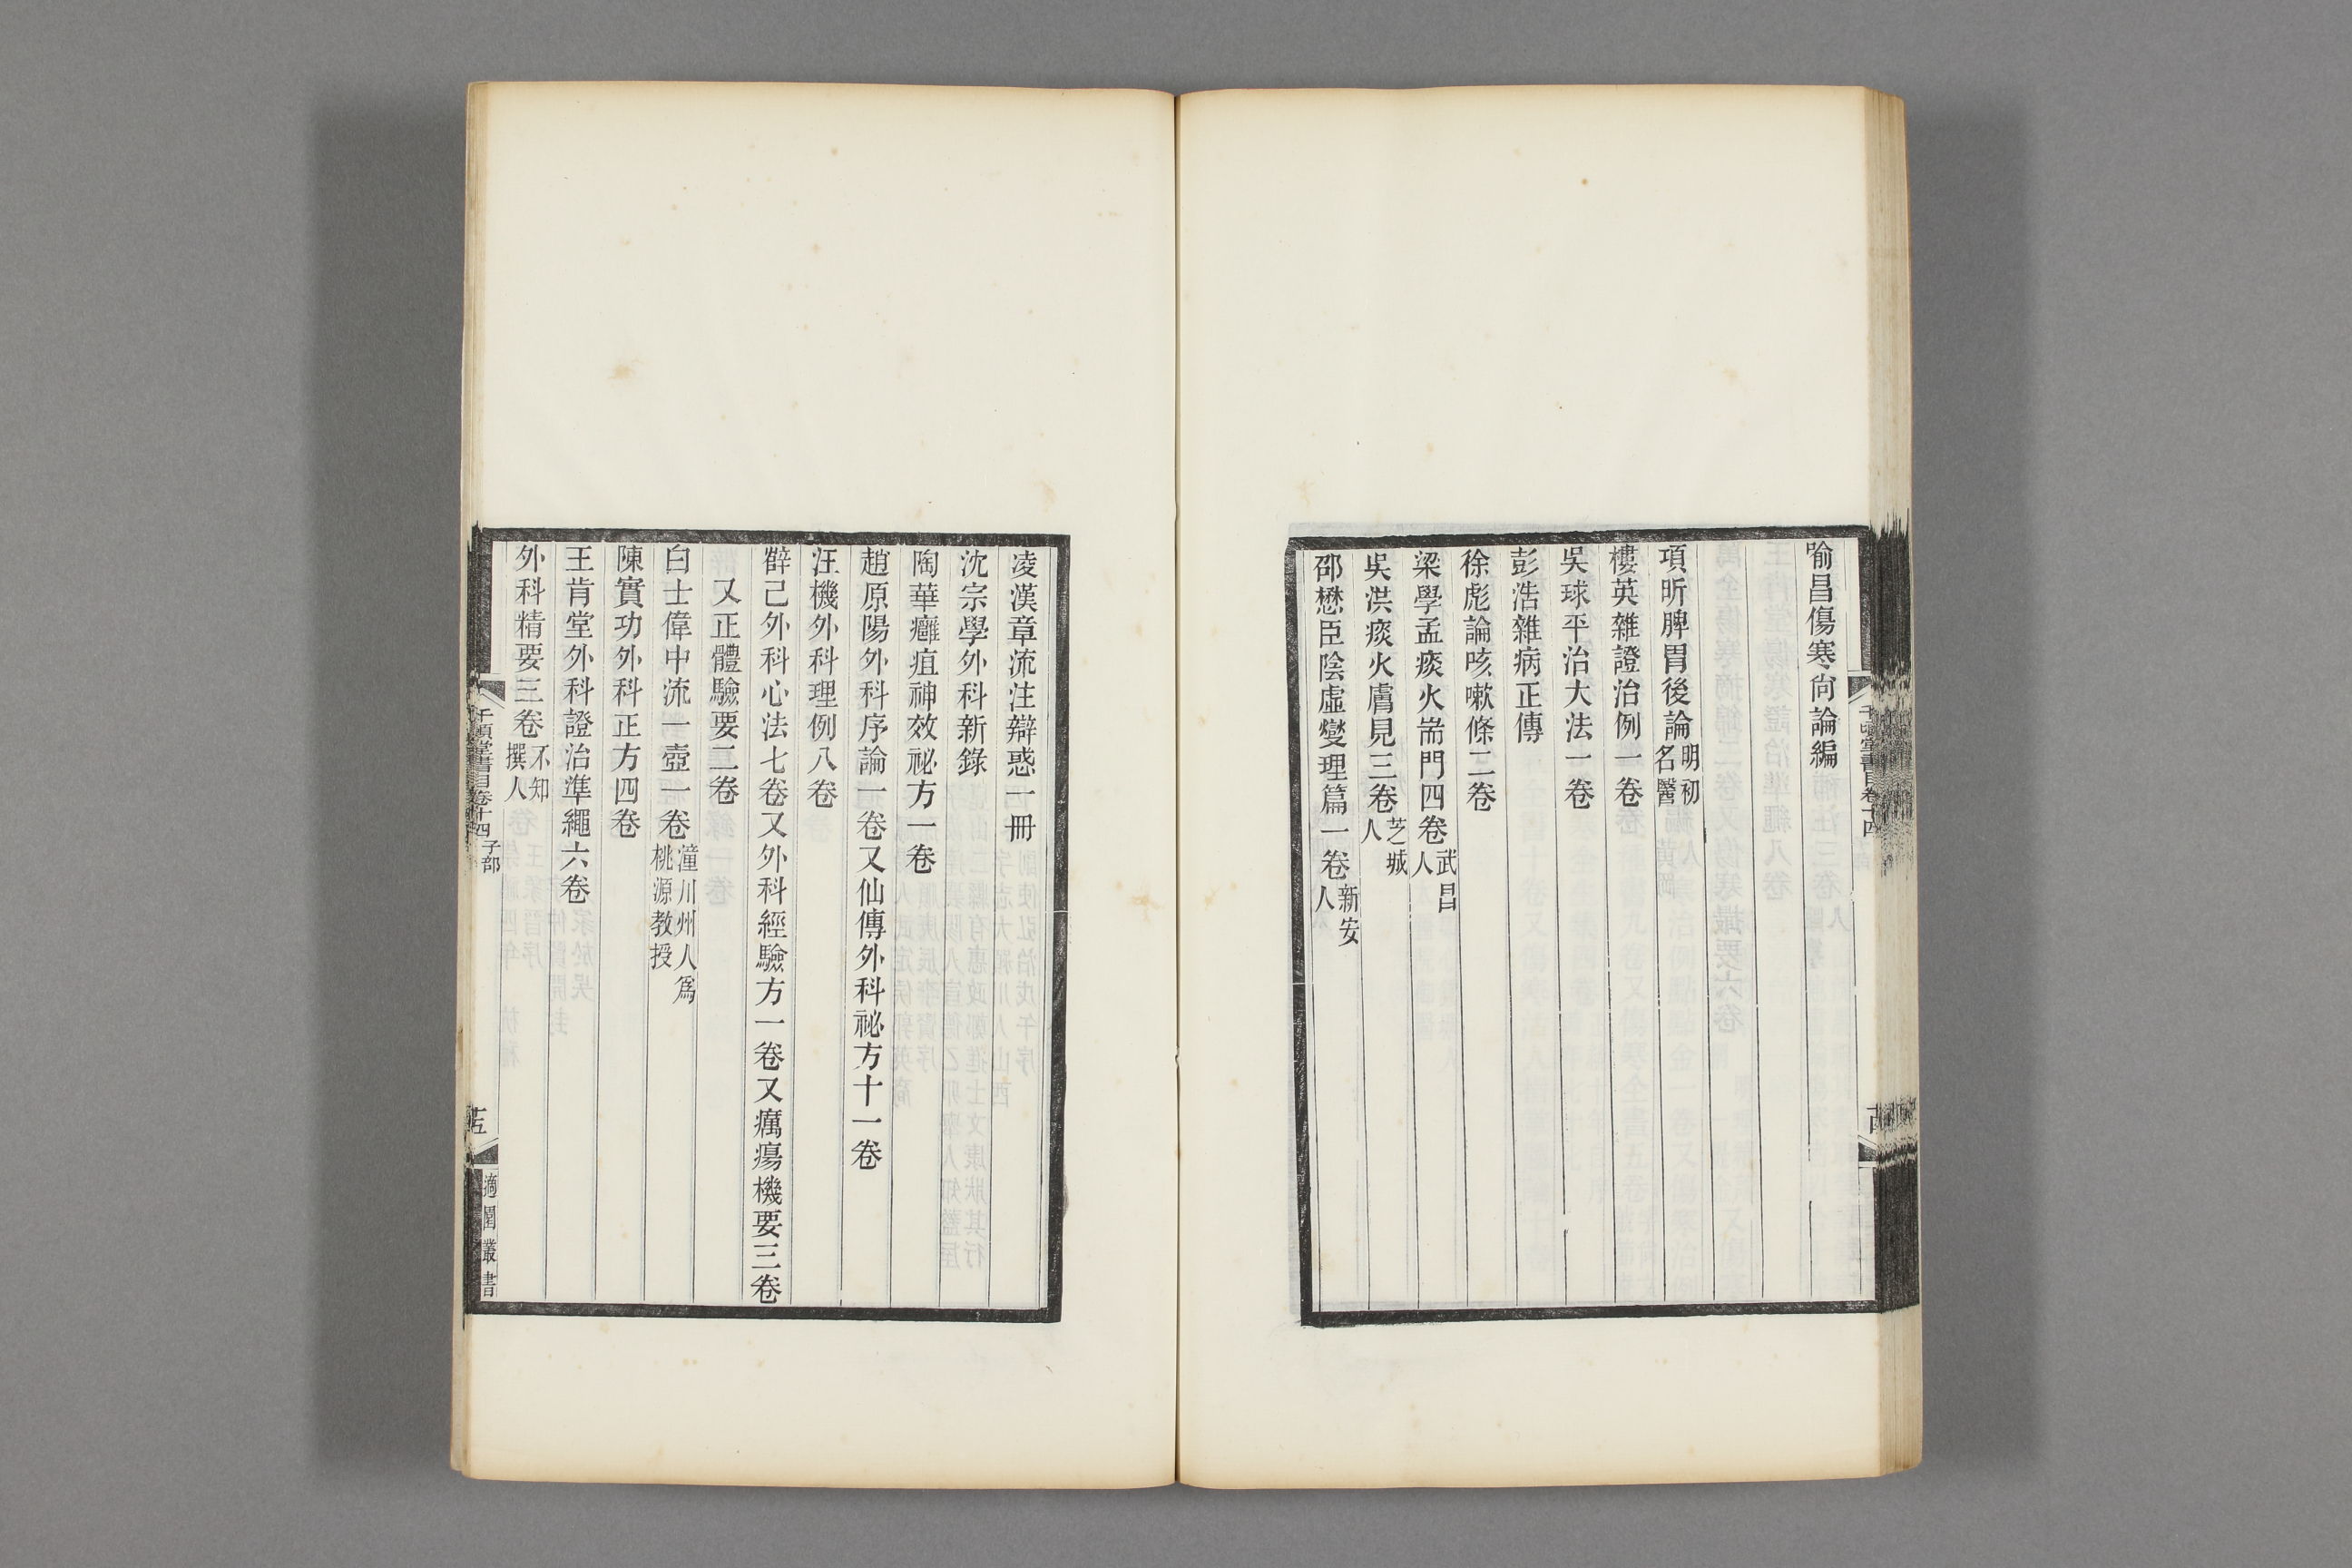 喻昌傷寒尙論編
項昕脾胃後論明初名醫
樓英雜證治例一卷
吳球平治大法一卷
彭浩雜病正傳
徐彪論咳嗽條二卷
梁學孟痰火耑門四卷武昌人
吳洪痰火膚見三卷芝城人
邵懋臣陰虛燮理篇一卷新安人
千頃堂書目卷十四
凌漢章流注辯惑一冊
沈宗學外科新錄
陶華癰疽神效祕方一卷
趙原陽外科序論一卷又仙傳外科祕方十一卷
汪機外科理例八卷
薛己外科心法七卷又外科經驗方一卷又癘瘍機要三卷
又正體驗要二卷
白士偉中流一壺一卷潼川州人爲桃源教授
陳實功外科正方四卷
王肯堂外科證治準繩六卷
外科精要三卷不知撰人
千頃堂書目卷十四 子部
適園叢書